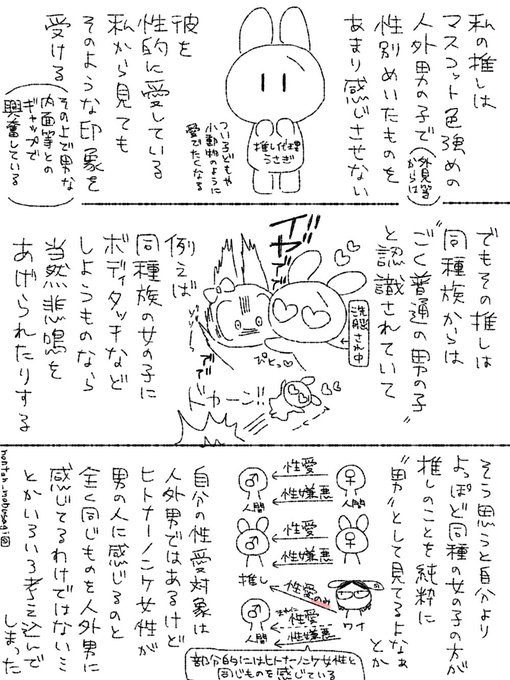 私の推しは
マスコット色強めの
人外男の子で
(外見等からは)
性別めいたものを
あまり感じさせない
推し代理
うさぎ
つい子どもや
小動物のように
愛でたくなる
彼を
性的に愛している
私から見ても
そのような印象を
受ける
(その上で男な
内面等との
ギャップで
興奮している)
でもその推しは
同種族からは
"ごく普通の男の子"
と認識されていて
洗脳され中
イヤアアア
ぴとっ♡
ゾゾゾ
ドカーン!!
例えば
同種族の女の子に
ボディタッチなど
しようものなら
当然悲鳴を
あげられたりする
そう思うと自分より
よっぽど同種の女の子の方が
推しのことを純粋に
"男"として見てるよなぁ
とか
♂ 性愛 ♀
人間 性嫌悪 人間
♂ 性愛 ♀
性嫌悪
推し 性愛のみ
♂ 性愛 ワイ
人間 性嫌悪
部分的にはヒトナーノンケ女性と
同じものを感じている
自分の性愛対象は
人外男ではあるけど
ヒトナーノンケ女性が
男の人に感じるのと
全く同じものを人外男に
感じてるわけではない…
とかいろいろ考え込んで
しまった